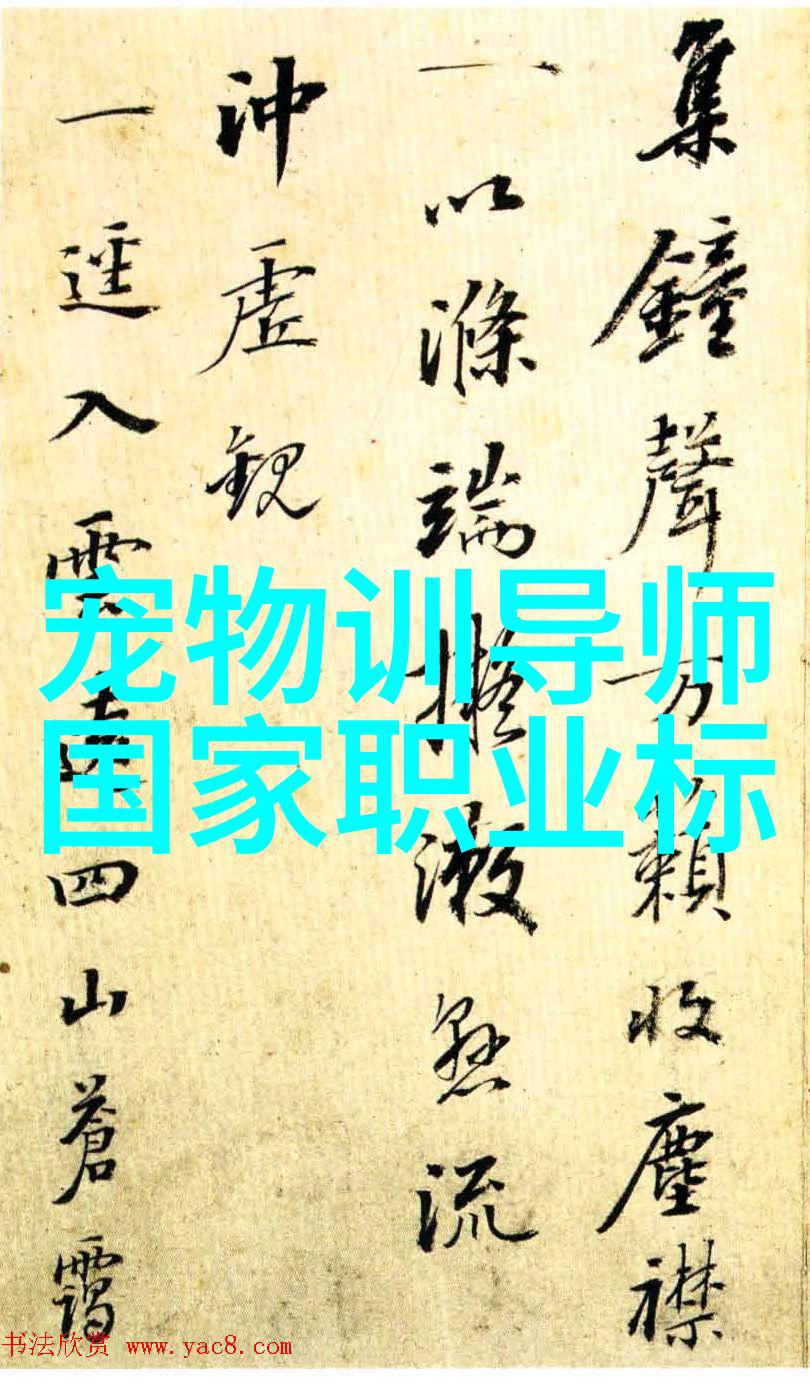 集鐘聲万籟收塵襟
一以滌端擬漱流
沖虛觀
一逕入雲四山蒼靄
宠物训导师
国家职业标
书法欣赏 www.yac8.com